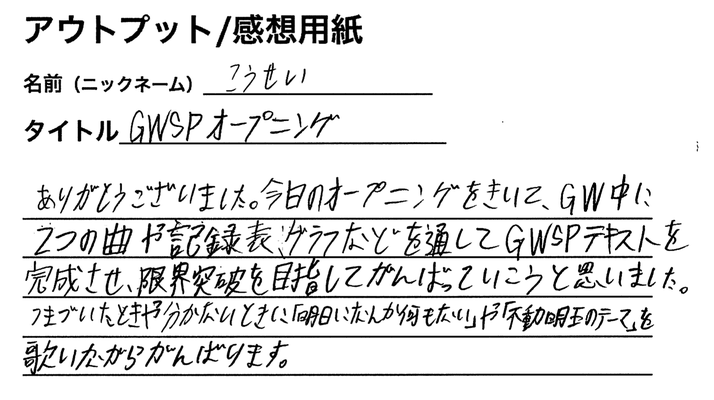 アウトプット/感想用紙
名前（ニックネーム） こうせい
タイトル GWSPオープニング
ありがとうございました。今日のオープニングをきいて、GW中に
2つの曲や記録表、グラフなどを通してGWSPテキストを
完成させ、限界突破を目指してがんばっていこうと思いました。
つまづいたときや分かないときに「明日になんか何もない」や「不動明王のテーマ」を
歌いながらがんばります。